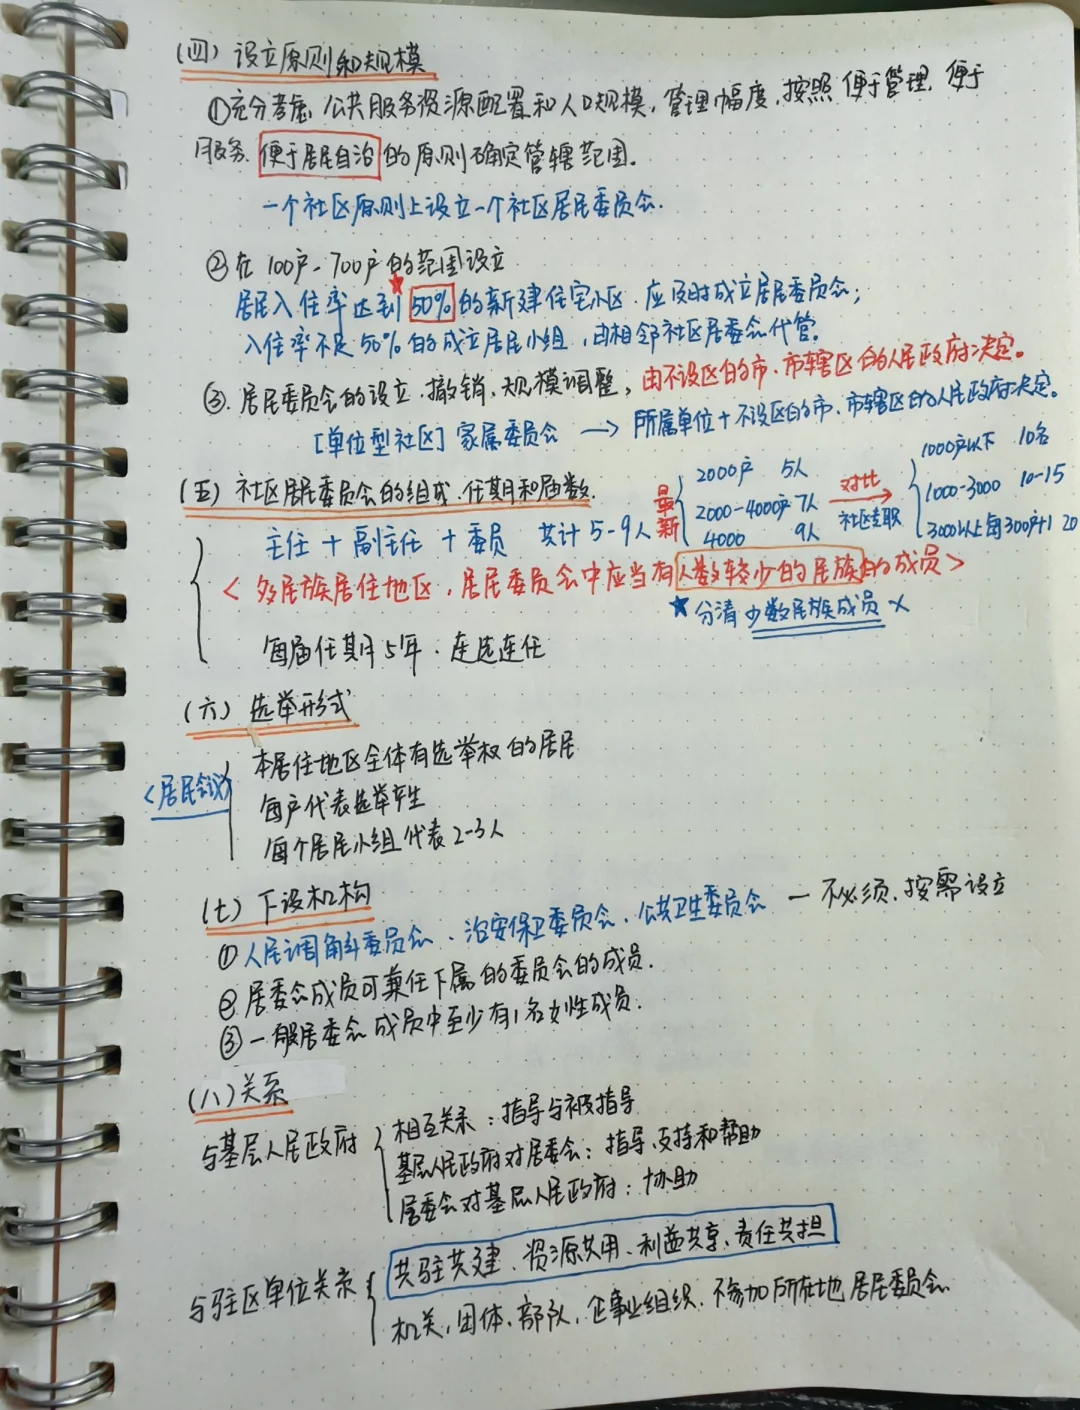 (四) 设立原则和规模
①充分考虑 公共服务资源配置和人口规模, 管理幅度, 按照 便于管理, 便于
服务, 便于居民自治的原则确定管辖范围。
一个社区原则上设立一个社区居民委员会.
②在100户-700户的范围设立
居民入住率达到50%的新建住宅小区, 应及时成立居民委员会;
入住率不足50%的成立居民小组, 由相邻社区居委会代管。
③. 居民委员会的设立、撤销、规模调整, 由不设区的市、市辖区的人民政府决定。
[单位型社区] 家属委员会 → 所属单位+不设区的市、市辖区的人民政府决定。
(五) 社区居民委员会的组成、任期和届数.
主任+副主任+委员 共计5-9人
最新
2000户 5人
2000-4000户 7人
4000 9人
对比
社区专职
1000户以下 10名
1000-3000 10-15
3000以上每300户+1 20
<多民族居住地区, 居民委员会中应当有人数较少的民族的成员>
★分清 少数民族成员 ×
每届任期5年. 连选连任
(六) 选举形式
<居民会议
本居住地区全体有选举权的居民
每户代表选举产生
每个居民小组代表2-3人
(七) 下设机构
①人民调解委员会、治安保卫委员会、公共卫生委员会 — 不必须, 按需设立
②居委会成员可兼任下属的委员会的成员.
③一般居委会成员中至少有1名女性成员.
(八)关系
与基层人民政府
相互关系: 指导与被指导
基层人民政府对居委会: 指导、支持和帮助
居委会对基层人民政府: 协助
与驻区单位关系
共驻共建、资源共用、利益共享、责任共担
机关, 团体, 部队, 企事业组织, 不参加所在地居民委员会